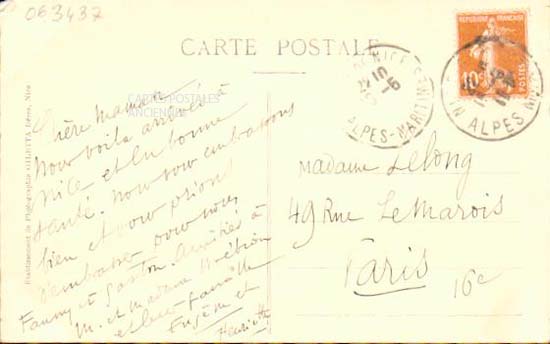 063437
CARTE POSTALE
CARTES POSTALES
ANCIENNES
RÉPUBLIQUE FRANÇAISE
10c
POSTES
NICE
ALPES-MARITIMES
ALPES
Chère Maman
Nous voilà arrivés à
Nice et en bonne
santé. Nous vous embrassons
bien et vous prions
d'embrasser pour nous
Fanny et Gaston. Amitiés à
M. et Madame
et leur famille
Eugène et
Henriette
Madame Lelong
49 Rue Le Marois
Paris
16e
Etablissement de Photographie GILLETTA frères, Nice